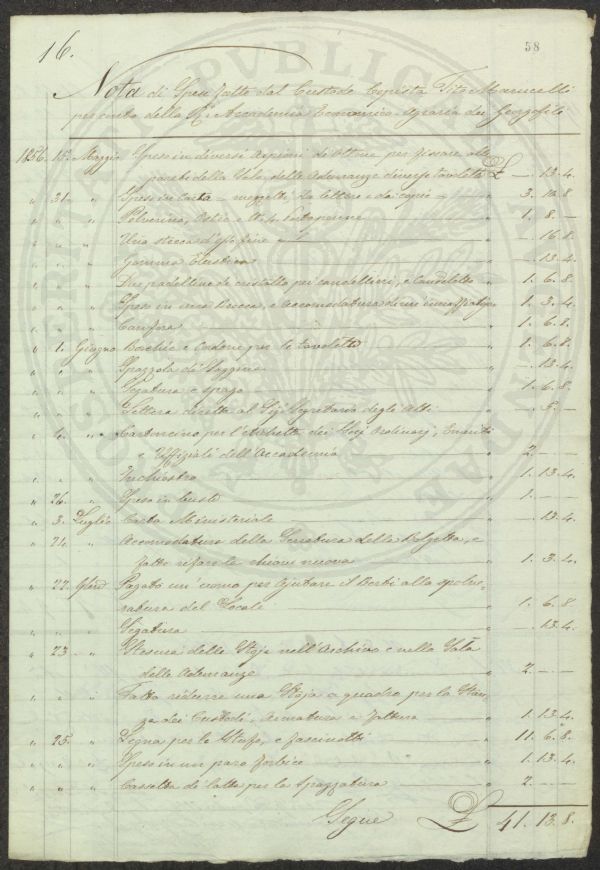 16.
58
Nota di Spese fatte dal Custode Copista Tito Marucelli
per conto della R. Accademia Economico-Agraria dei Georgofili
1856. 15. Maggio Spese in diversi Arpioni di Ottone per fissare alle
pareti della Sala delle Adunanze diverse tavolette £ — 13. 4.
" 31. " Spese in Carta — mezzetti, da lettere e da copie — " 3. 10. 8
" " " Polverino, Ostie e N. 4 — " 1. 8. —
" " " Una stecca d'Osso fine — " — 16. 8.
" " " Gomma Elastica — " — 13. 4.
" " " Due padelline di cristallo pei candellieri, e Candelotto " 1. 6. 8.
" " " Spese in una Brocca, e Accomodatura di un annaffiatojo " 1. 3. 4.
" " " Canfora — " 1. 6. 8.
" 1. Giugno Borchie e Cordone per le tavolette " 1. 6. 8.
" " " Spazzola di Saggina — " — 13. 4.
" " " Segatura e spago — " 1. 6. 8.
" " " Lettera diretta al Sig. Segretario degli Atti — " — 5. —
" 4. " Cartoncino per l'Etichette dei Socj Ordinarj, Emeriti
e Uffiziali dell'Accademia — " 2. — —
" " " Inchiostro — " 1. 13. 4.
" 26. " Spese in buste — " 1. — —
" 3. Luglio Carta Ministeriale — " — 13. 4.
" 24. " Accomodatura della Serratura della Bolgetta, e
fatto rifare la chiave nuova — " 1. 3. 4.
" 22. 8bre Pagato un' uomo per ajutare il Borbi alla spolve-
ratura del Locale — " 1. 6. 8
" " " Segatura — " — 13. 4.
" 23 " Stesura delle Stoje nell'Archivio e nella Sala
delle Adunanze — " 2. — —
" " " Fatto ridurre una Stoja a quadro per la Stan-
za dei Custodi, Armatura e Fattura — " 1. 13. 4.
" 25. " Legna per le Stufe, e fascinotti — " 11. 6. 8.
" " " Spese in un paro Forbice — " 1. 13. 4.
" " " Cassetta di latta per la Spazzatura — " 2. — —
Segue £ 41. 13. 8.